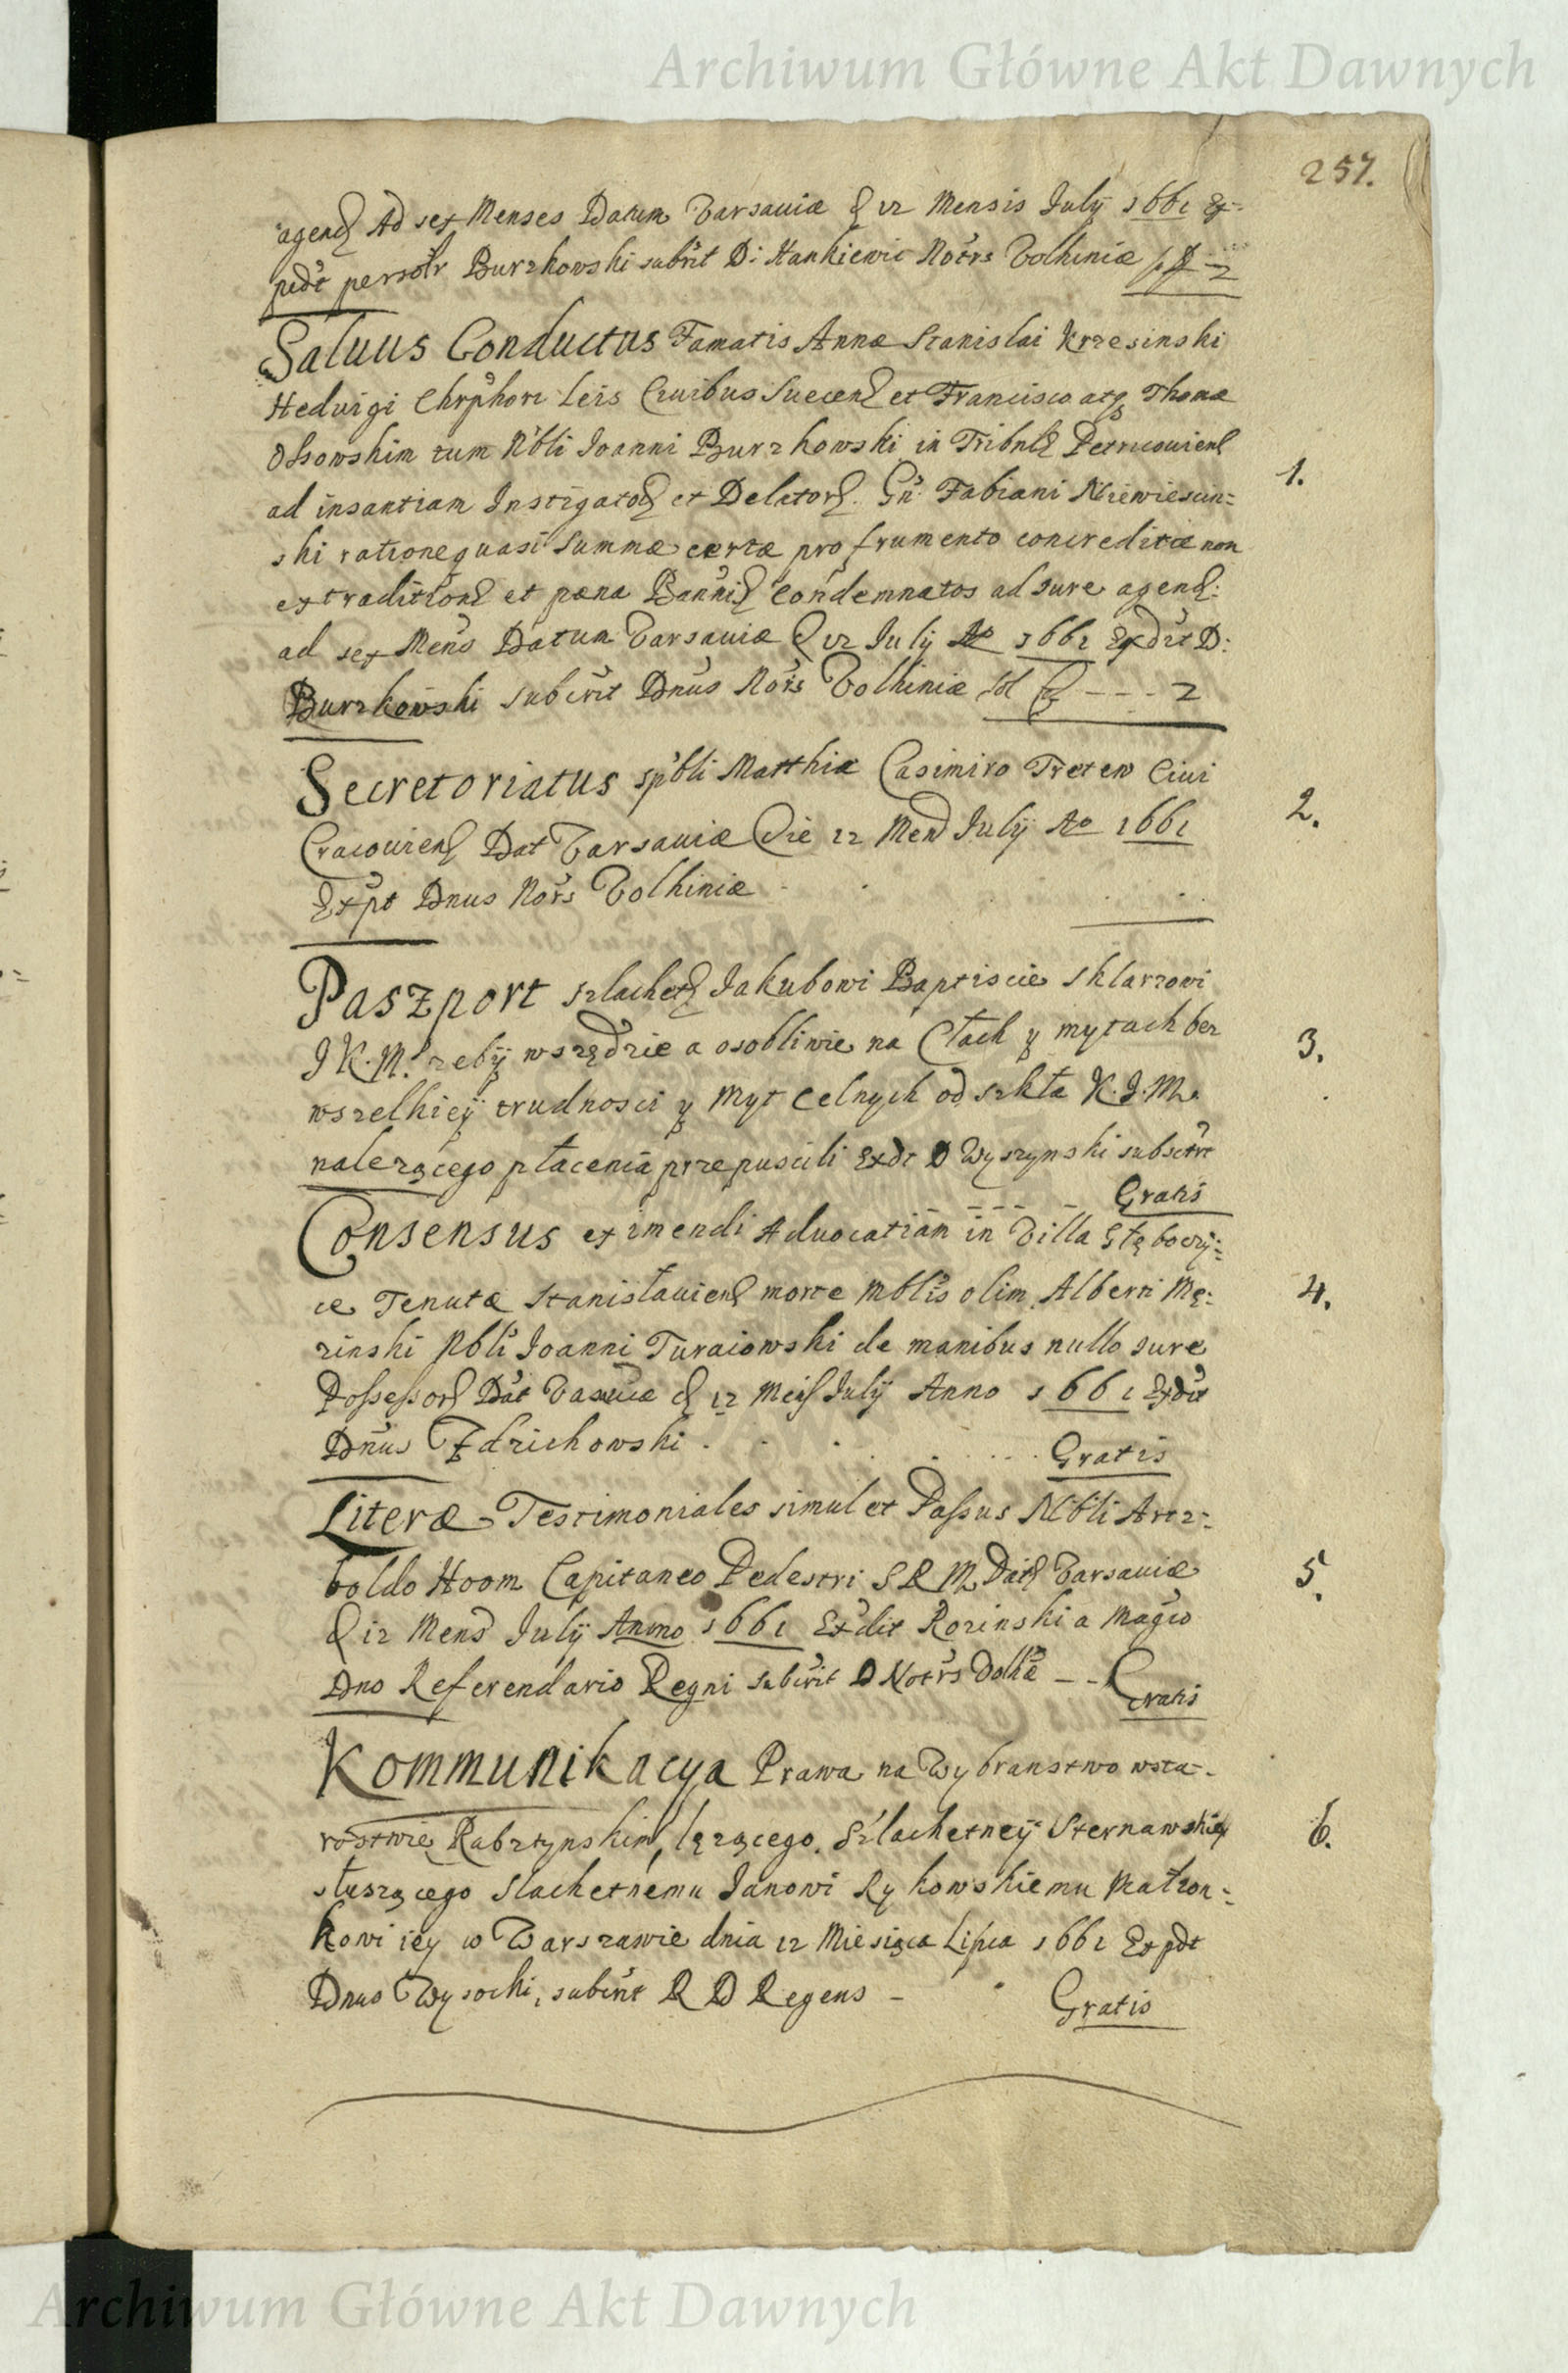 Archiwum Główne Akt Dawnych
257.
agend Ad sex Menses Datum Varsaviæ d 12 Mensis July 1661 Ex-
pedt persolr Burzkowski subrit D: Hankiewic Notrs Volhiniæ 2
Saluus Conductus Famatis Annæ Stanislai Krzesinski
Heduigi Chrphori Leis Ciuibus Suecens et Francisco atq Thomæ
Ossowskim tum Nbli Joanni Burzkowski in Tribnls Petricouiens
1.
ad insantiam Instigatos et Delators. Gn: Fabiani Niewiescin=
ski ratione quasi Summæ certæ pro frumento concreditæ non
extradition et pæna Bannis condemnatos ad Jure agend:
ad sex Mens Datum Varsauiæ d 12 July Ao 1661 Exdit D:
Burzkowski subcrit Dnus Nors Volhiniæ sol fl - - - 2
Secretoriatus spbli Matthiæ Casimiro Treter Ciui
2.
Cracouiens Dat Varsauiæ Die 12 Mens July Ao 1661
Expt Dnus Nors Volhiniæ
Paszport szlachets Jakubowi Baptiscie sklarzowi
J K. M. zeby wszędzie a osobliwie na Cłach y mytach bez
3.
wszelkiey trudnosci y Myt Celnych od szkła K. J. M.
nalezącego płacenia przepuscili Exdt D Wyszynski subscrt
Gratis
Consensus eximendi Aduocatiam in Villa Głęboczy=
ce Tenutæ Stanisłauiens morte Nblis olim Alberti Mę=
4.
zinski Nbli Joanni Turaiowski de manibus nullo Jure
Possessors Dat Vasauiæ d 12 Mens July Anno 1661 Exdit
Dnus Zdzichowski . . . . Gratis
Literæ Testimoniales simul et Passus Nbli Artz=
boldo Hoom Capitaneo Pedestri S R M Dats Varsauiæ
5.
d 12 Mens July Anno 1661 Exdit Rozinski a Magco
Dno Referendario Regni subcrit D Notrs Volhæ - - Gratis
Kommunikacya Prawa na Wybranstwo w sta-
rostwie Rabsztynskim lezącego Szlachetney Sternawskiey
6.
słuszącego Slachetnemu Janowi Rykowskiemu Małzon=
kowi iey w Warszawie dnia 12 Miesiąca Lipca 1661 Expdt
Dnus Wysocki, subcrit R D Regens - Gratis
Archiwum Główne Akt Dawnych